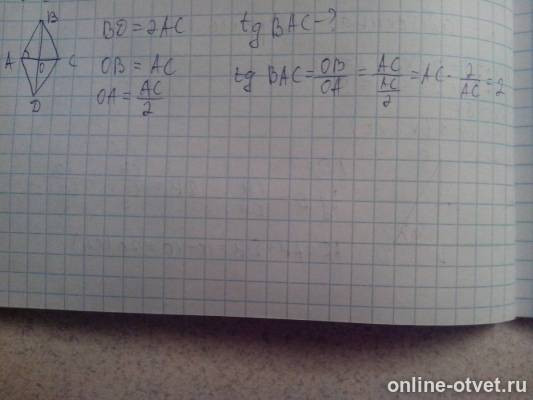 B
A O C
D
BD = 2AC
OB = AC
OA = AC/2
tg BAC - ?
tg BAC = OB/OA = AC/(AC/2) = AC · 2/AC = 2
online-otvet.ru